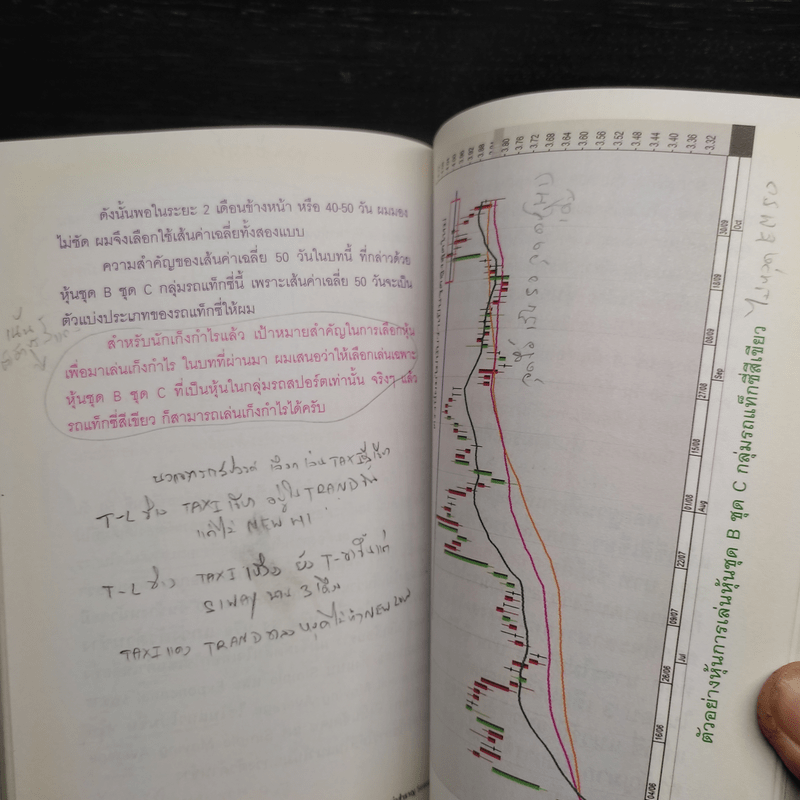 ดังนั้นพอในระยะ 2 เดือนข้างหน้า หรือ 40-50 วัน ผมมอง
ไม่ชัด ผมจึงเลือกใช้เส้นค่าเฉลี่ยทั้งสองแบบ
ความสำคัญของเส้นค่าเฉลี่ย 50 วันในบทนี้ ที่กล่าวด้วย
หุ้นชุด B ชุด C กลุ่มรถแท็กซี่นี้ เพราะเส้นค่าเฉลี่ย 50 วันจะเป็น
ตัวแบ่งประเภทของรถแท็กซี่ให้ผม
สำหรับนักเก็งกำไรแล้ว เป้าหมายสำคัญในการเลือกหุ้น
เพื่อมาเล่นเก็งกำไร ในบทที่ผ่านมา ผมเสนอว่าให้เลือกเล่นเฉพาะ
หุ้นชุด B ชุด C ที่เป็นหุ้นในกลุ่มรถสปอร์ตเท่านั้น จริงๆ แล้ว
รถแท็กซี่สีเขียว ก็สามารถเล่นเก็งกำไรได้ครับ
เลือกเล่น TAXI
T-L ช่วง TAXI เขียว อยู่ใน TRAND ขึ้น
แต่ไม่ NEW HI
T-L ช่วง TAXI เหลือง ยัง T-ขาขึ้นแต่
SIWAY นาน 3 เดือน
TAXI แดง TRAND ขาลง หยุดไม่ทำ NEW LOW
ตัวอย่างหุ้นการเล่นหุ้นชุด B ชุด C กลุ่มรถแท็กซี่สีเขียว
3.80
3.76
3.72
3.68
3.64
3.60
3.56
3.52
3.48
3.44
3.40
3.36
3.32
04/06
16/06
26/06
Jul
09/07
22/07
01/08
Aug
15/08
27/08
Sep
08/09
18/09
30/09
Oct